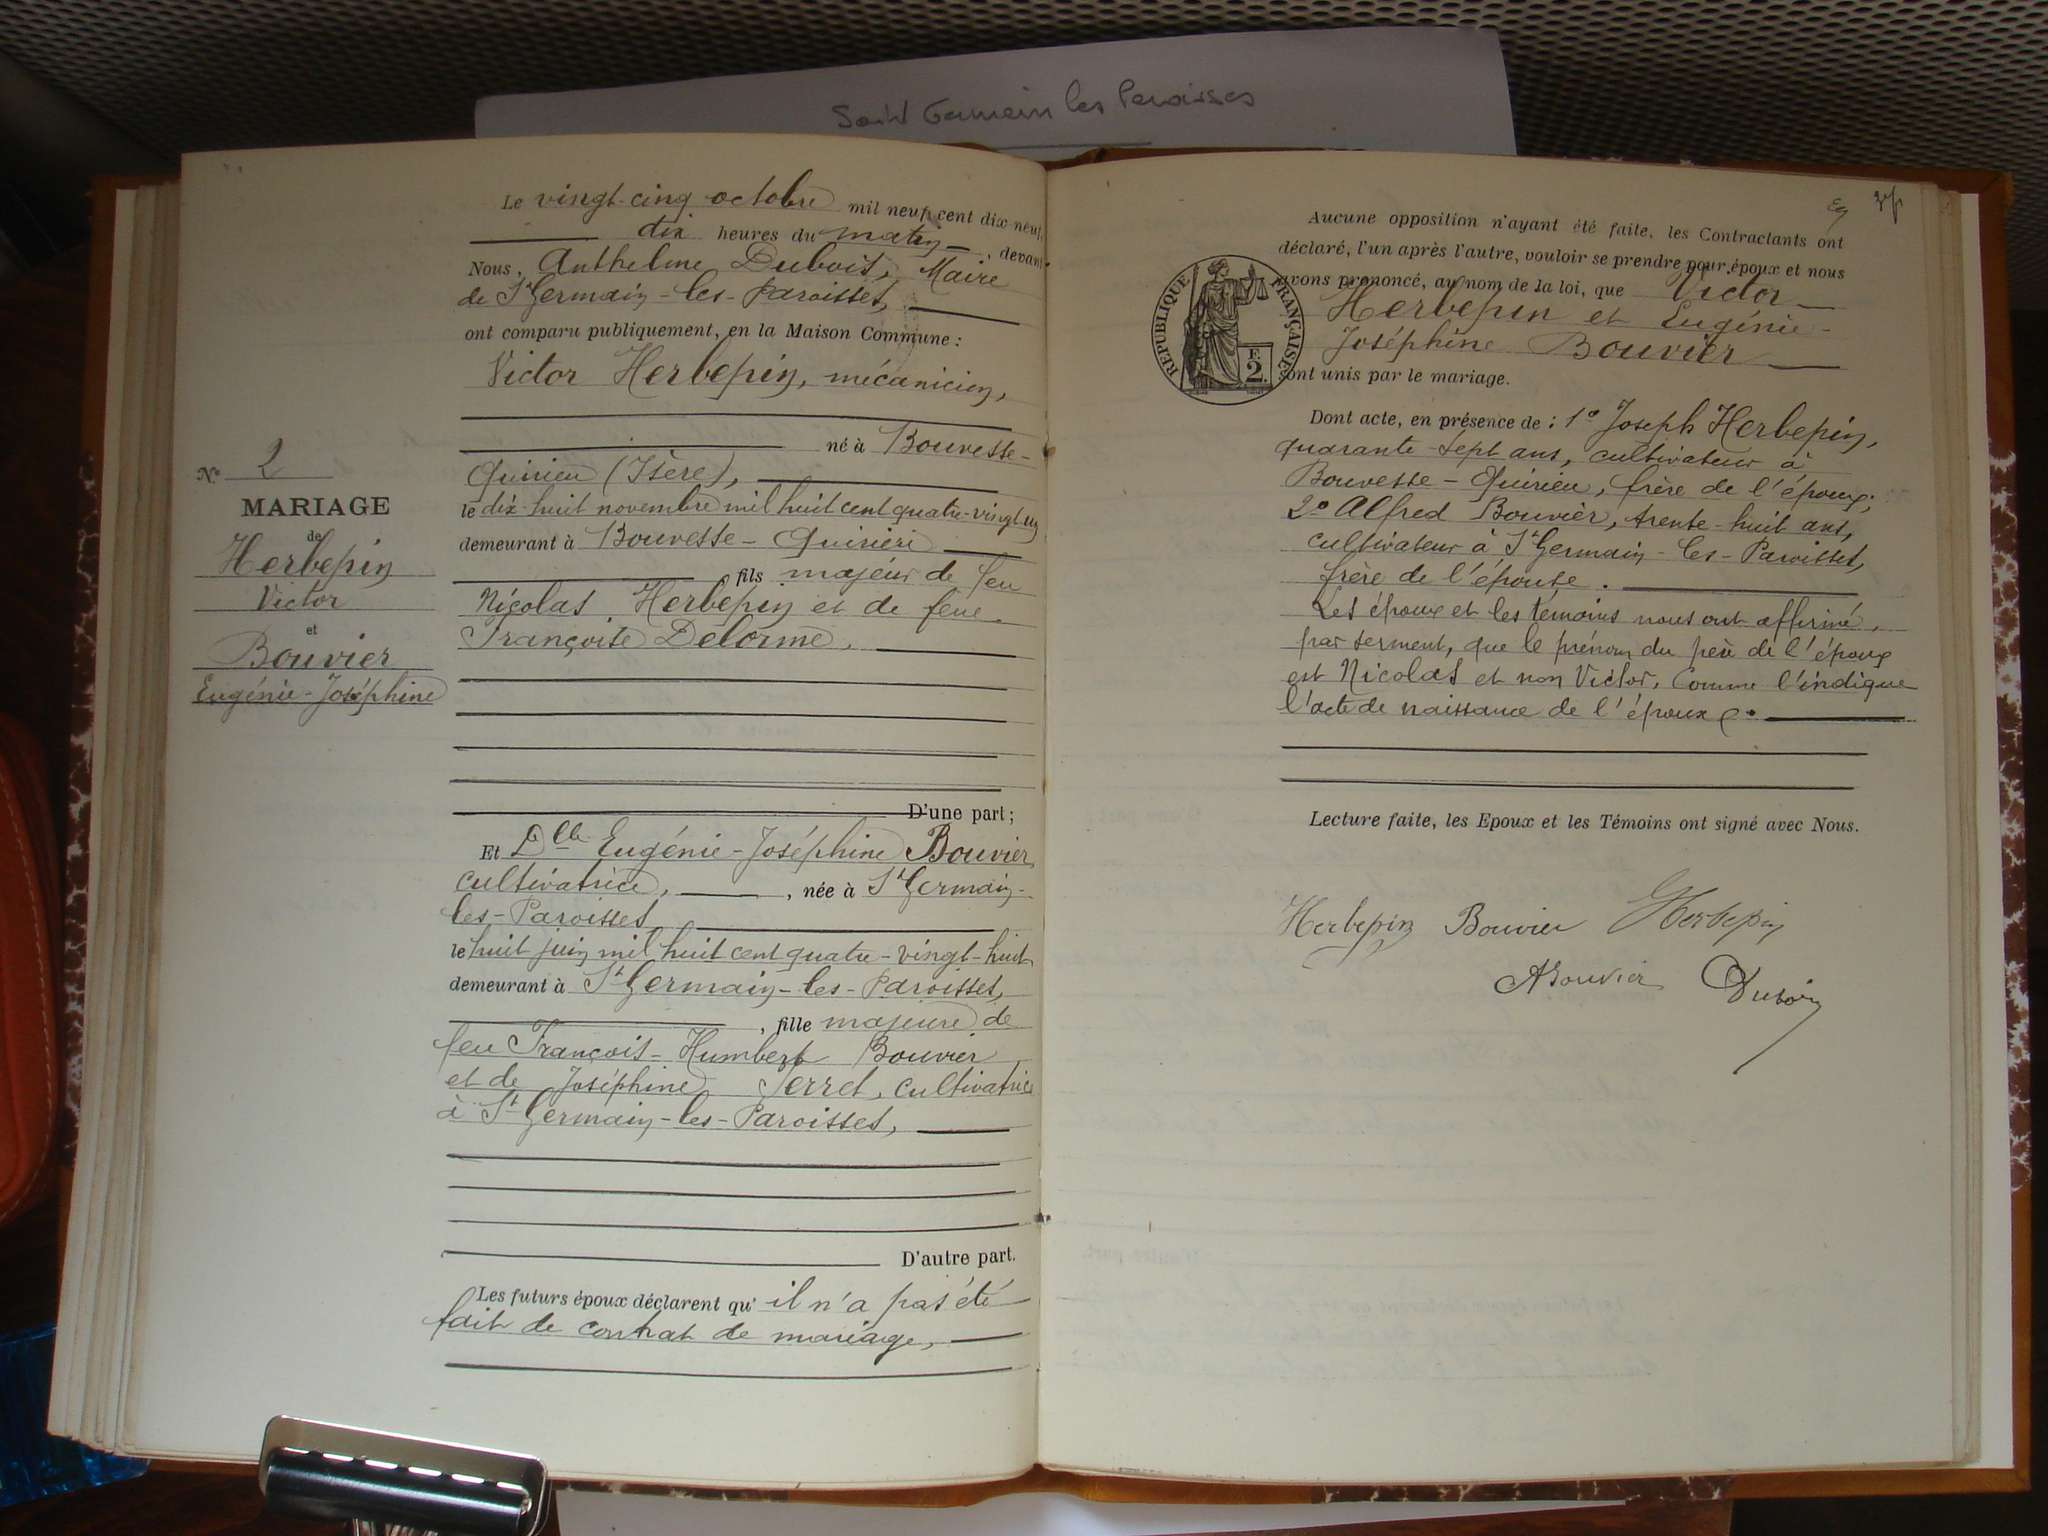 Saint Germain les Paroisses
Le vingt-cinq octobre mil neuf cent dix-neuf,
dix heures du matin, devant
Nous, Anthelme Dubois, Maire
de St Germain-les-Paroisses,
ont comparu publiquement, en la Maison Commune :
Victor Herbepin, mécanicien,
né à Bouvesse-
Quirieu (Isère),
le dix-huit novembre mil huit cent quatre-vingt-un
demeurant à Bouvesse-Quirieu
fils majeur de feu
Nicolas Herbepin et de feue
Françoise Delorme,
D'une part ;
Et Dlle Eugénie-Joséphine Bouvier,
cultivatrice, , née à St Germain-
les-Paroisses
le huit juin mil huit cent quatre-vingt-huit
demeurant à St Germain-les-Paroisses,
, fille majeure de
feu François-Humbert Bouvier
et de Joséphine Serret, cultivatrice
à St Germain-les-Paroisses,
D'autre part.
Les futurs époux déclarent qu' il n'a pas été
fait de contrat de mariage,
No 2
MARIAGE
de
Herbepin
Victor
et
Bouvier
Eugénie-Joséphine
Aucune opposition n'ayant été faite, les Contractants ont
déclaré, l'un après l'autre, vouloir se prendre pour époux et nous
avons prononcé, au nom de la loi, que Victor
Herbepin et Eugénie-
Joséphine Bouvier
sont unis par le mariage.
RÉPUBLIQUE FRANÇAISE
F.
2.
Dont acte, en présence de : 1o Joseph Herbepin,
quarante-sept ans, cultivateur à
Bouvesse-Quirieu, frère de l'époux ;
2o Alfred Bouvier, trente-huit ans,
cultivateur à St Germain-les-Paroisses,
frère de l'épouse.
Les époux et les témoins nous ont affirmé,
par serment, que le prénom du père de l'époux
est Nicolas et non Victor, comme l'indique
l'acte de naissance de l'époux.
Lecture faite, les Epoux et les Témoins ont signé avec Nous.
Herbepin Bouvier Herbepin
ABouvier Dubois